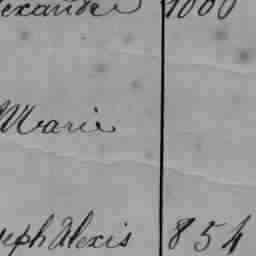 exandre 1000
Marie
seph Alexis 854